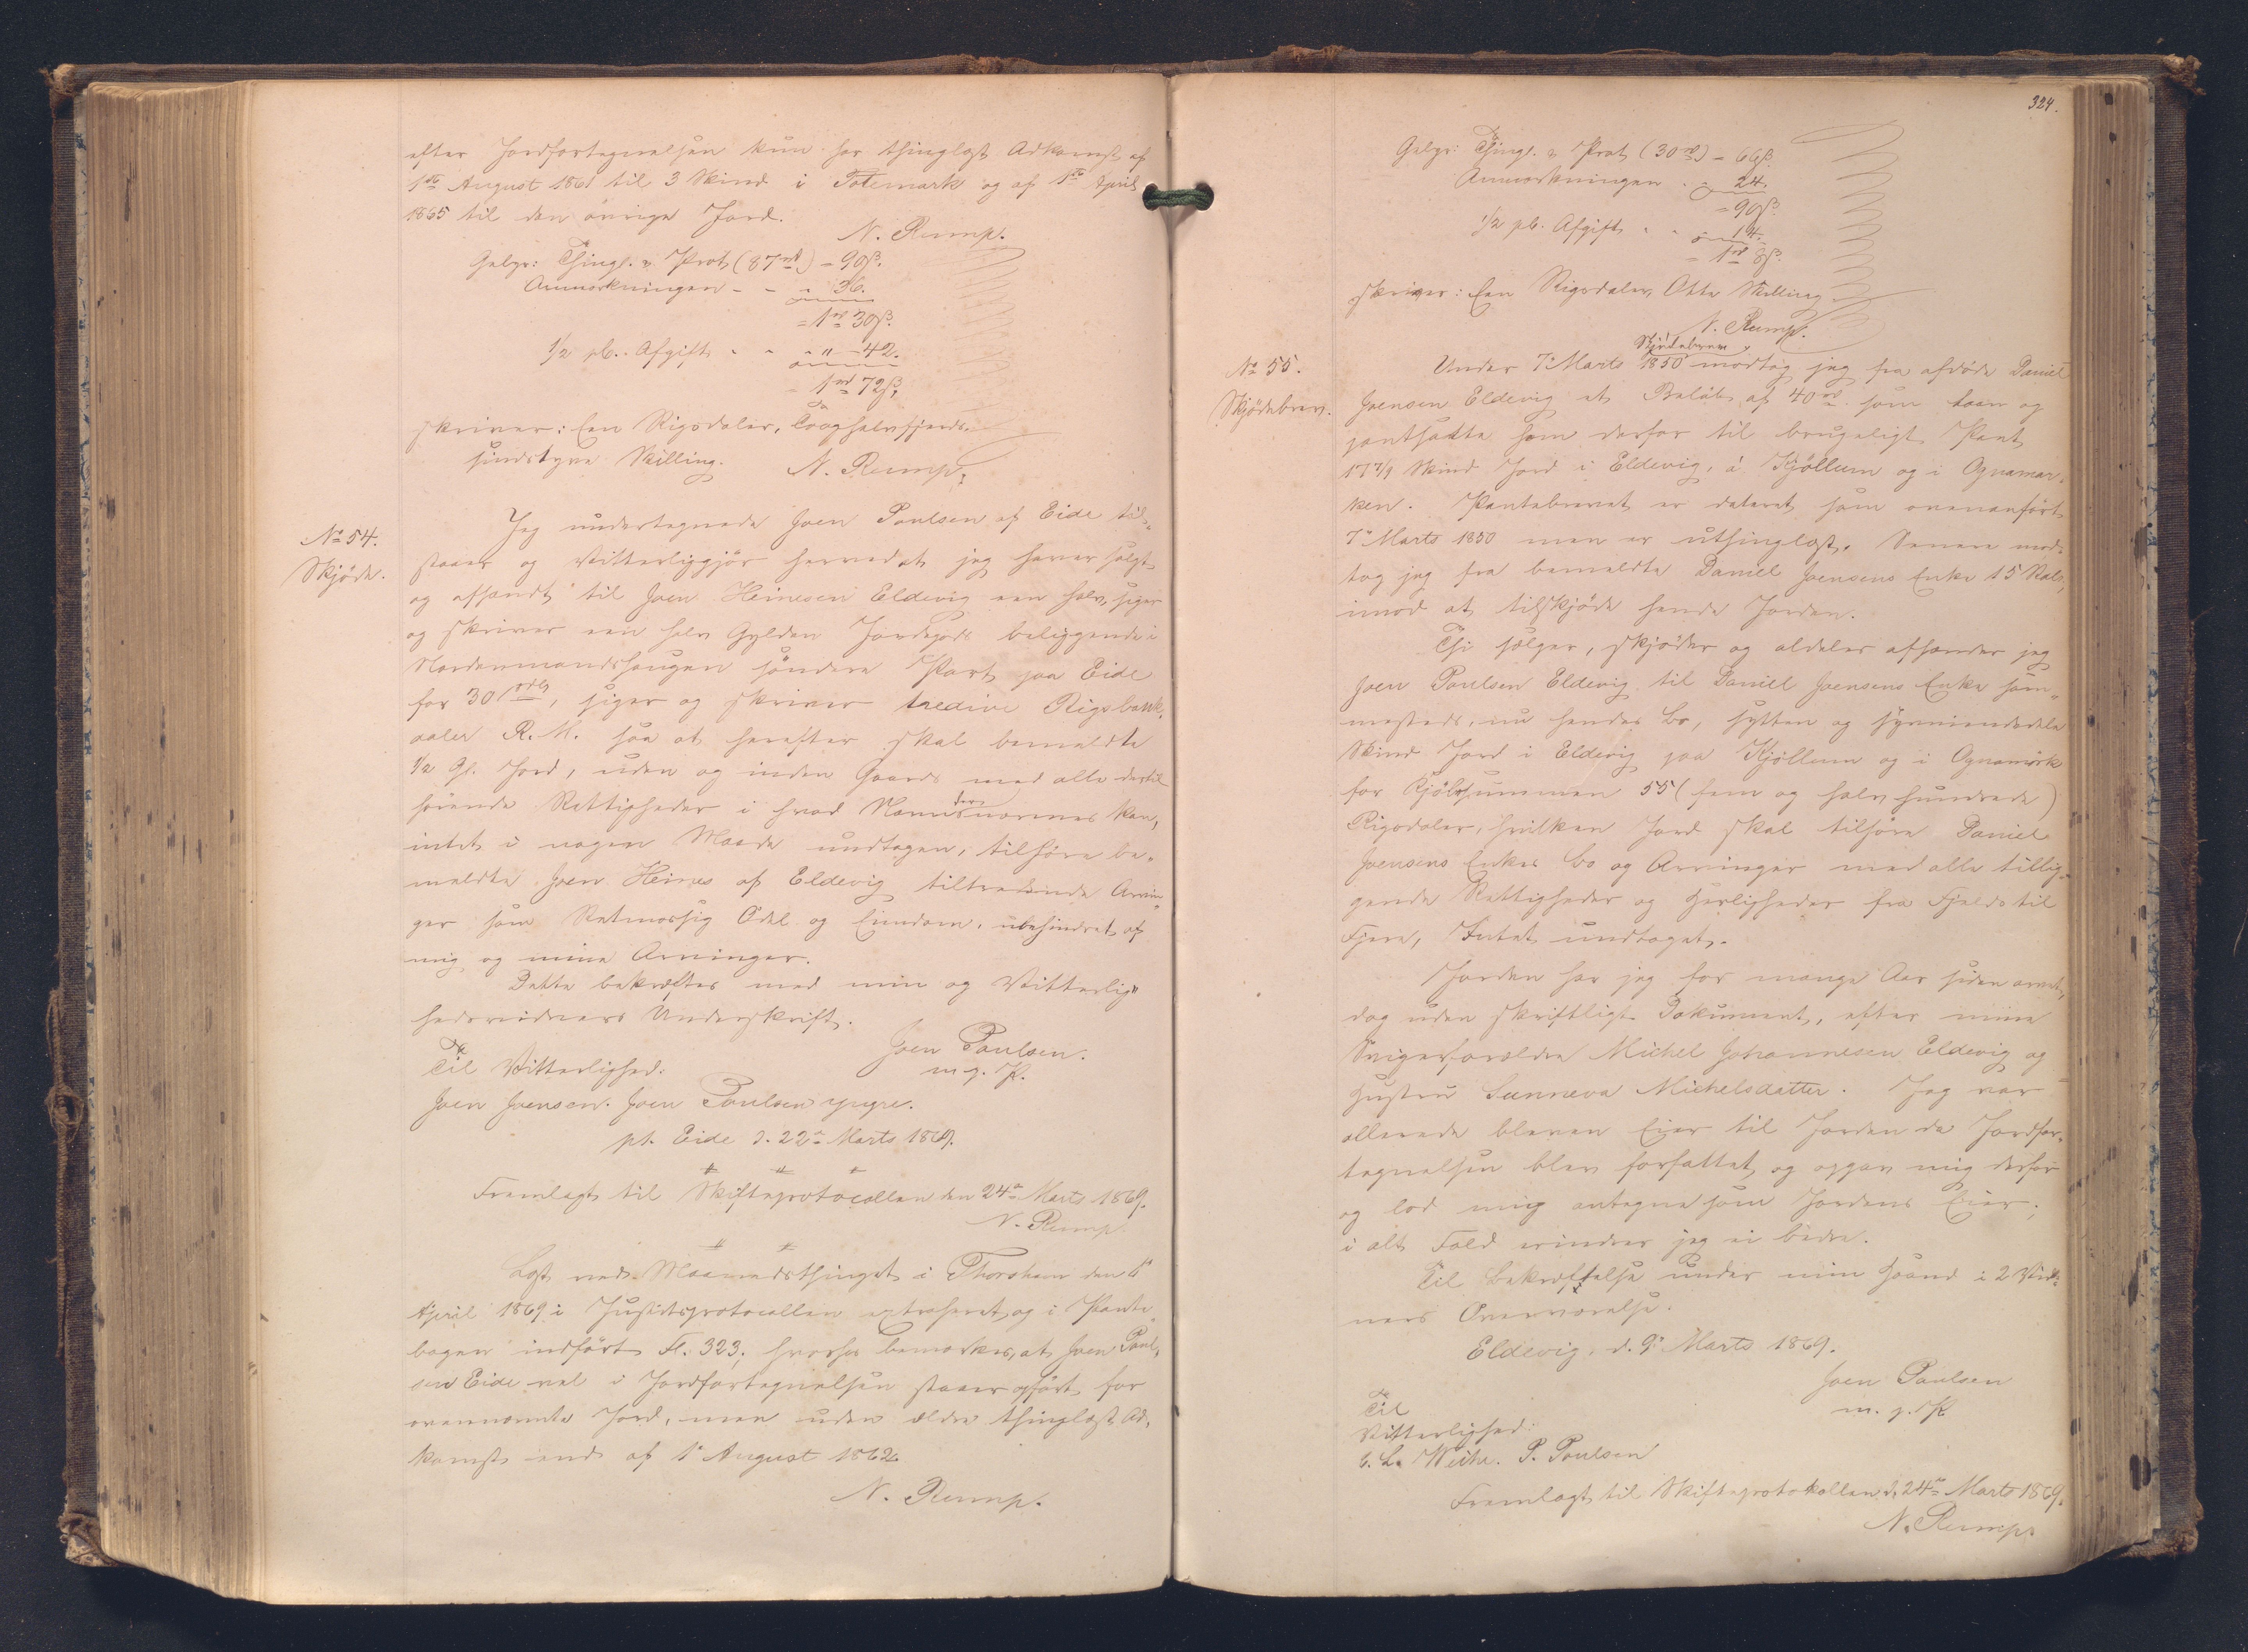 efter Jordfortegnelsen kun har thinglæst Adkomst af
1ste August 1861 til 3 Skind i Totemark og af 1ste April
1865 til den övrige Jord.
N. Rump.
Gebyr: Thingl. & Prot (87 rd) = 90 ß.
Anmærkningen - - " 36.
= 1 rd 30 ß.
1/2 pC. Afgift - - " " 42.
= 1 rd 72 ß,
skriver: Een Rigsdaler, To og halvfjerds-
sindstyve Skilling.
N. Rump.
No 54.
Skjöde.
Jeg undertegnede Joen Poulsen af Eide til-
staaer og Vitterliggjör herved at jeg haver solgt
og afhændt til Joen Heinesen Eldevig een halv, siger
og skriver een halv Gylden Jordegods beliggende i
Nordenmandshaugen söndere Part paa Eide
for 30 rdlr, siger og skriver tredive Rigsbank-
daler R. M. saa at herefter skal bemeldte
1/2 Gl. Jord, uden og inden Gaards med alle dertil
hörende Rettigheder i hvad Navn der nævnes kan,
intet i nogen Maade undtagen, tilhöre be-
meldte Joen Heines af Eldevig tiltrædende Arvin-
ger som Retmæssig Odel og Eiendom, ubehindret af
mig og mine Arvinger.
Dette bekræftes med min og Vitterlig-
hedsvidners Underskrift.
Joen Poulsen.
m. p. P.
Til Vitterlighed:
Joen Joensen. Joen Poulsen yngre.
pt. Eide d. 22de Marts 1869.
Fremlagt til Skifteprotocollen den 24de Marts 1869.
N. Rump
Læst ved Maanedsthinget i Thorshavn den 6te
April 1869 i Justitsprotocollen extraheret, og i Pante-
bogen indfört Fl. 323; hvorhos bemærkes, at Joen Poul-
sen Eide vel i Jordfortegnelsen staaer opfört for
ovennævnte Jord, men uden ældre thinglæst Ad-
komst end af 1ste August 1862
N. Rump.
324.
Gebyr: Thingl. & Prot (30 rd) = 66 ß.
Anmærkningen - " 24.
= 90 ß.
1/2 pC. Afgift - - " 14.
= 1 rd 8 ß.
skriver: Een Rigsdaler, Otte Skilling
N. Rump.
No 55.
Skjödebrev.
Skjödebrev
Under 7de Marts 1850 modtog jeg fra afdöde Daniel
Joensen Eldevig et Belöb af 40 rd som Laan og
pantsatte ham derfor til brugeligt Pant
17 7/9 Skind Jord i Eldevig, á Kjöllum og i Ognamar-
ken. Pantebrevet er dateret som ovenanfört
7de Marts 1850 men er uthinglæst. Senere mod-
tog jeg fra bemeldte Daniel Joensens Enke 15 Rdlr,
imod at tilskjöde hende Jorden.
Thi sælger, skjöder og aldeles afhænder jeg
Joen Poulsen Eldevig til Daniel Joensens Enke sam-
mesteds, nu hendes Bo, sytten og syvniendedele
Skind Jord i Eldevig paa Kjöllum og i Ognamörk
for Kjöbsummen 55 (fem og halv hundrede)
Rigsdaler, hvilken Jord skal tilhöre Daniel
Joensens Enkes Bo og Arvinger med alle tillig-
gende Rettigheder og Herligheder fra Fjeld til
Fjære, Intet undtaget.
Jorden har jeg for mange Aar siden arvet,
dog uden skriftligt Dokument, efter mine
Svigerforældre Michel Johannesen Eldevig og
Hustru Sunneva Michelsdatter. Jeg var
allerede bleven Eier til Jorden da Jordfor-
tegnelsen blev forfattet og opgav mig derfor
og lod mig antegne som Jordens Eier;
i alt Fald erindrer jeg ei bedre.
Til Bekræftelse under min Haand i 2 Vid-
ners Overværelse.
Eldevig, d. 9de Marts 1869.
Joen Poulsen
m. p. P
Til
Vitterlighed:
C. L. Weihe. P. Poulsen
Fremlagt til Skifteprotokollen d. 24de Marts 1869.
N. Rump.